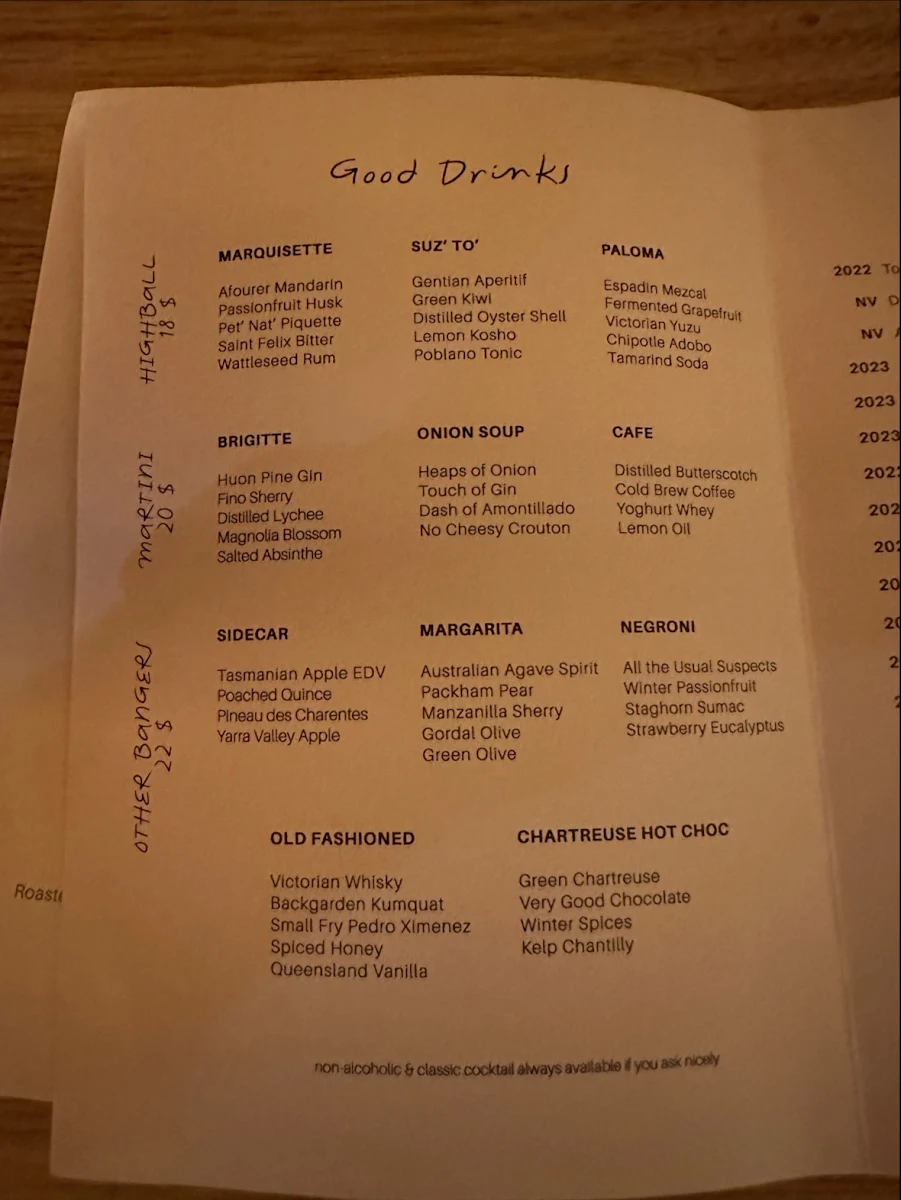 Good Drinks
HIGHBALL
18 $
MARQUISETTE
Afourer Mandarin
Passionfruit Husk
Pet' Nat' Piquette
Saint Felix Bitter
Wattleseed Rum
SUZ' TO'
Gentian Aperitif
Green Kiwi
Distilled Oyster Shell
Lemon Kosho
Poblano Tonic
PALOMA
Espadin Mezcal
Fermented Grapefruit
Victorian Yuzu
Chipotle Adobo
Tamarind Soda
MARTINI
20 $
BRIGITTE
Huon Pine Gin
Fino Sherry
Distilled Lychee
Magnolia Blossom
Salted Absinthe
ONION SOUP
Heaps of Onion
Touch of Gin
Dash of Amontillado
No Cheesy Crouton
CAFE
Distilled Butterscotch
Cold Brew Coffee
Yoghurt Whey
Lemon Oil
OTHER BANGERS
22 $
SIDECAR
Tasmanian Apple EDV
Poached Quince
Pineau des Charentes
Yarra Valley Apple
MARGARITA
Australian Agave Spirit
Packham Pear
Manzanilla Sherry
Gordal Olive
Green Olive
NEGRONI
All the Usual Suspects
Winter Passionfruit
Staghorn Sumac
Strawberry Eucalyptus
OLD FASHIONED
Victorian Whisky
Backgarden Kumquat
Small Fry Pedro Ximenez
Spiced Honey
Queensland Vanilla
CHARTREUSE HOT CHOC
Green Chartreuse
Very Good Chocolate
Winter Spices
Kelp Chantilly
non-alcoholic & classic cocktail always available if you ask nicely
2022
NV
NV
2023
2023
2023